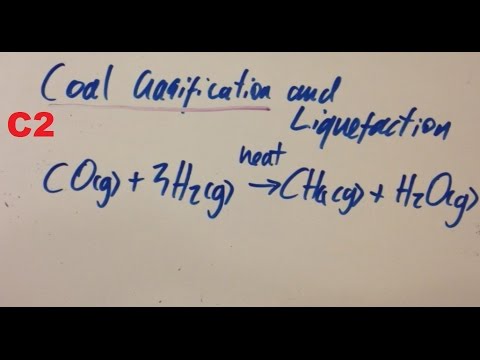 Coal Gasification and
Liquefaction
C2
heat
CO(g) + 3H₂(g) → CH₄(g) + H₂O(g)